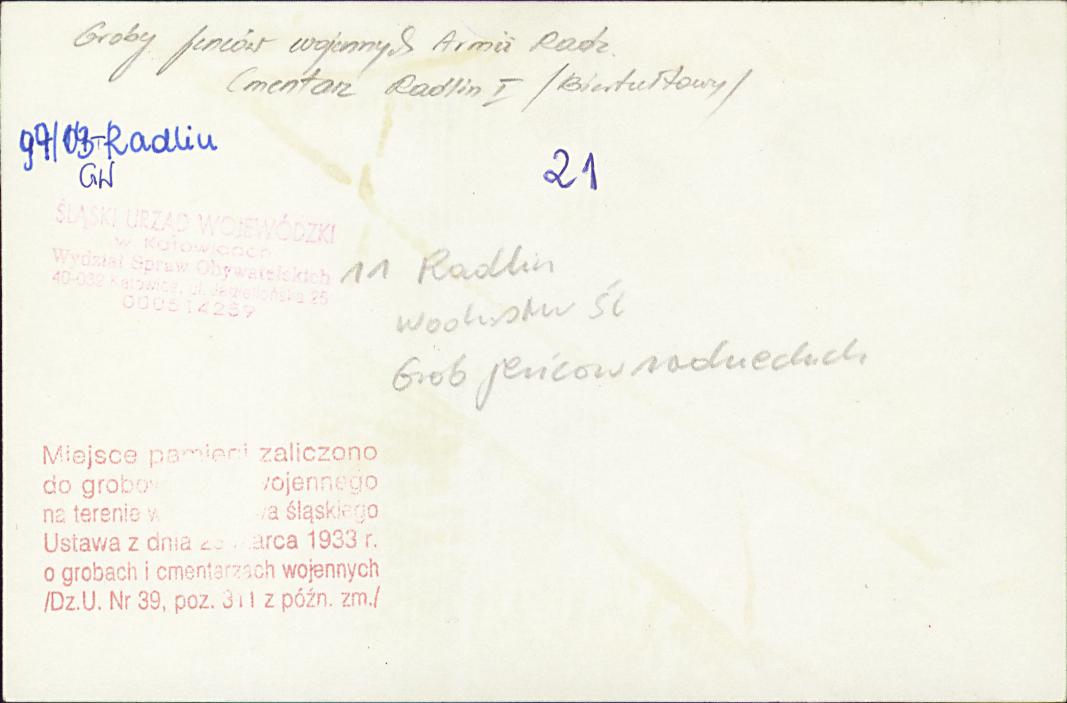 Groby jeńców wojennych Armii Radz.
Cmentarz Radlin I /Biertułtowy/
97/03-Radlin
GW
21
ŚLĄSKI URZĄD WOJEWÓDZKI
w Katowicach
Wydział Spraw Obywatelskich
40-032 Katowice, ul. Jagiellońska 25
000514259
11 Radlin
Wodzisław Śl
Grób jeńców radzieckich
Miejsce pamięci zaliczono
do grobo wojennego
na terenie w wa śląskiego
Ustawa z dnia 2 marca 1933 r.
o grobach i cmentarzach wojennych
/Dz.U. Nr 39, poz. 311 z późn. zm./